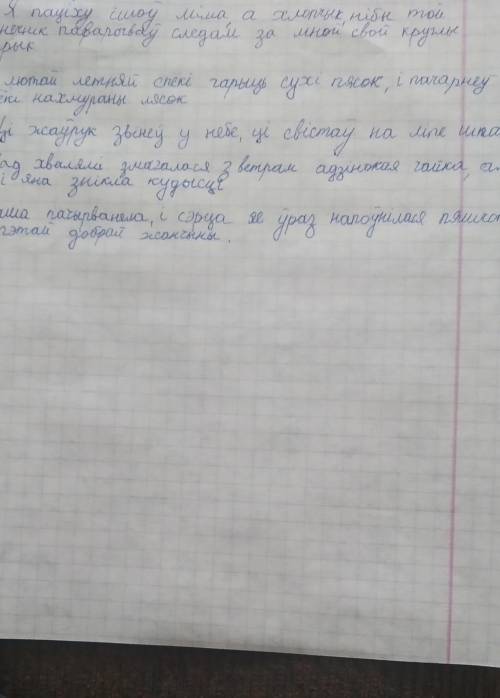 Я паціху ішоў міма а хлопчык, нібы той
паварочваў следам за мной свой круглы
лютай летняй спекі гарыць сухі пясок, і пачарнеў
нахмураны лясок
ці жаўрук звінеў у небе, ці свістаў на ліпе шпа
хвалямі змагалася з ветрам адзінокая чайка,
і яна знікла кудысці
пачырванела, і сэрца яе ўраз напоўнілася
гэтай добрай жанчыны.